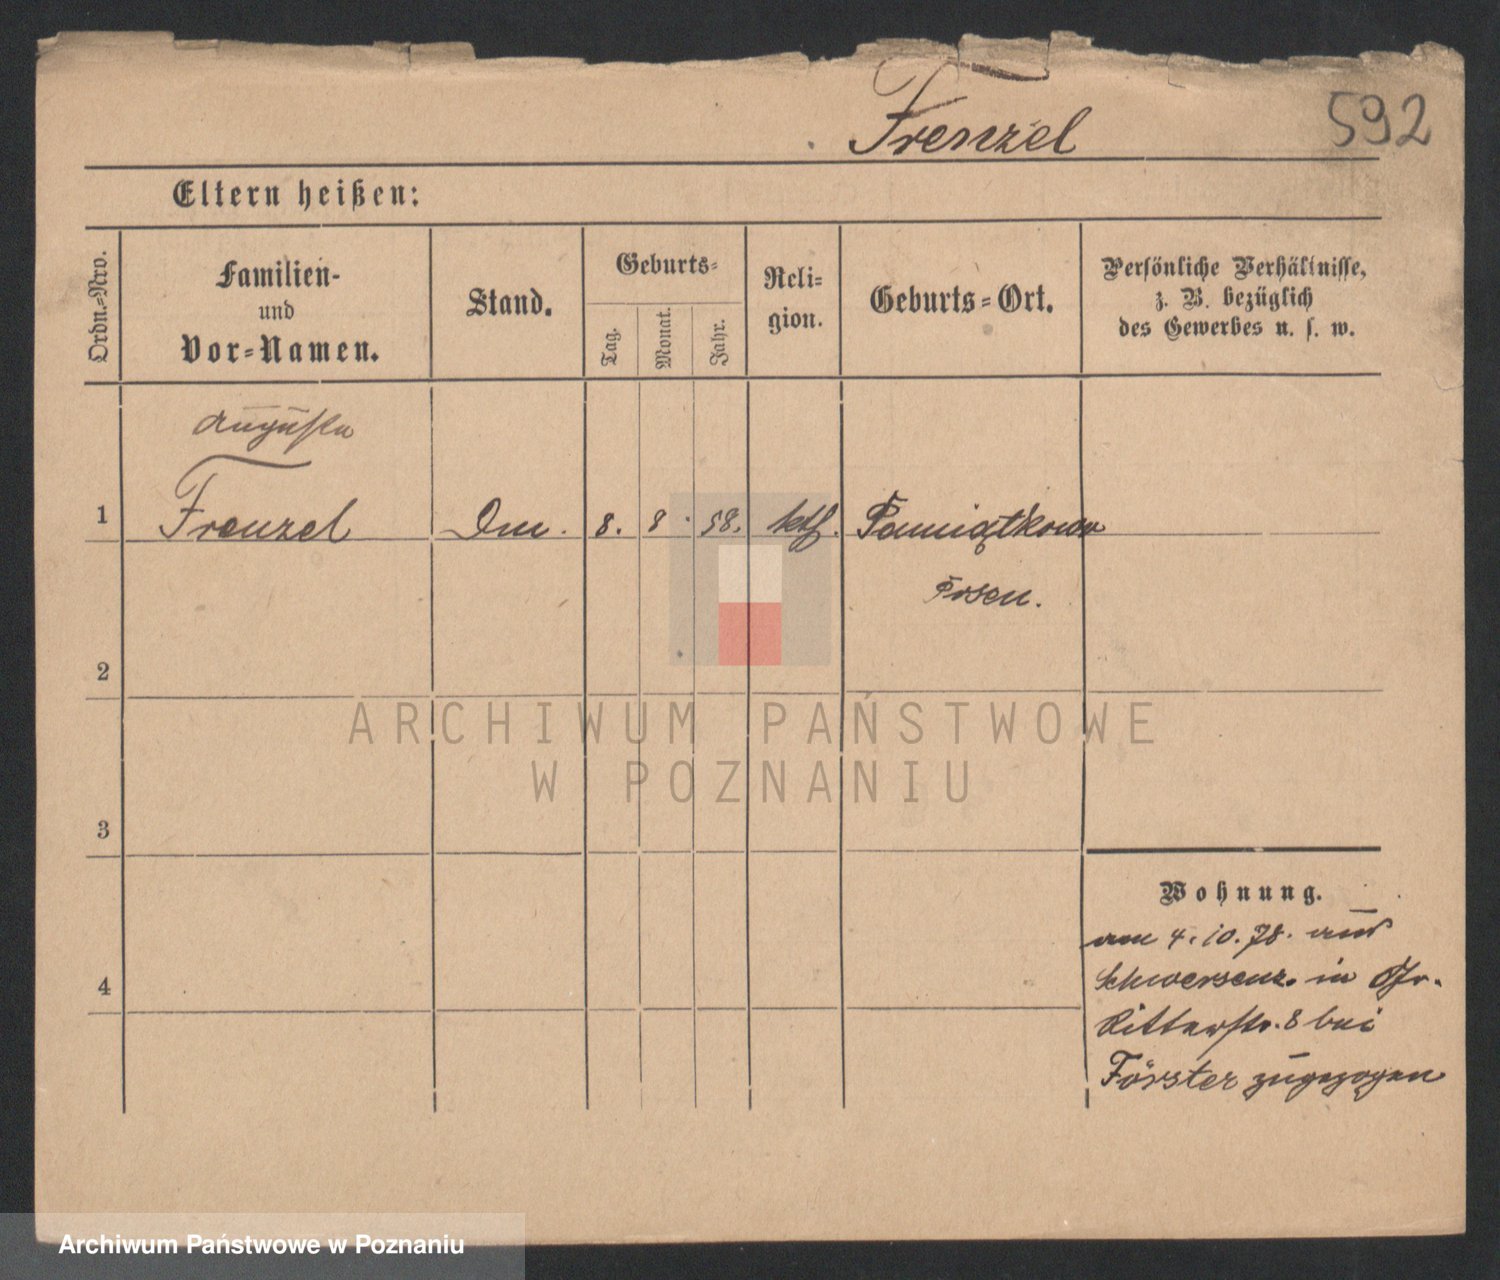 Frenzel
592
Eltern heißen:
Ordn.-Nro.
Familien-
und
Vor-Namen.
Stand.
Geburts-
Tag.
Monat.
Jahr.
Reli-
gion.
Geburts-Ort.
Persönliche Verhältnisse,
z. B. bezüglich
des Gewerbes u. s. w.
Auguste
1 Frenzel 8. 8. 58. kth. Pamiątkowo
Posen.
2
3
4
Wohnung.
am 4. 10. 78. aus
Schwersenz. in Gr.
Ritterstr. 8 bei
Förster zugezogen
ARCHIWUM PAŃSTWOWE
W POZNANIU
Archiwum Państwowe w Poznaniu